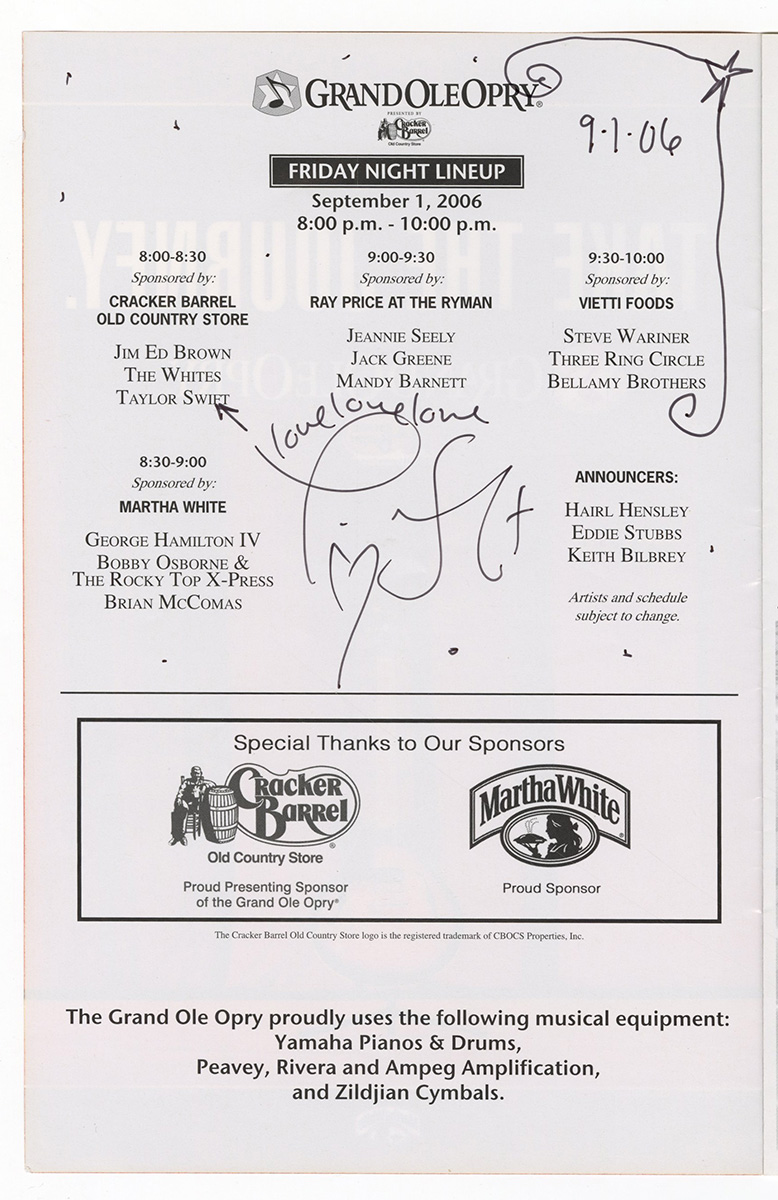 GRAND OLE OPRY®
PRESENTED BY
Cracker Barrel
Old Country Store
9·1·06
FRIDAY NIGHT LINEUP
September 1, 2006
8:00 p.m. - 10:00 p.m.
8:00-8:30
Sponsored by:
CRACKER BARREL
OLD COUNTRY STORE
JIM ED BROWN
THE WHITES
TAYLOR SWIFT
9:00-9:30
Sponsored by:
RAY PRICE AT THE RYMAN
JEANNIE SEELY
JACK GREENE
MANDY BARNETT
9:30-10:00
Sponsored by:
VIETTI FOODS
STEVE WARINER
THREE RING CIRCLE
BELLAMY BROTHERS
love love love
8:30-9:00
Sponsored by:
MARTHA WHITE
GEORGE HAMILTON IV
BOBBY OSBORNE &
THE ROCKY TOP X-PRESS
BRIAN MCCOMAS
ANNOUNCERS:
HAIRL HENSLEY
EDDIE STUBBS
KEITH BILBREY
Artists and schedule
subject to change.
Special Thanks to Our Sponsors
Cracker Barrel®
Old Country Store
Proud Presenting Sponsor
of the Grand Ole Opry®
Martha White®
Proud Sponsor
The Cracker Barrel Old Country Store logo is the registered trademark of CBOCS Properties, Inc.
The Grand Ole Opry proudly uses the following musical equipment:
Yamaha Pianos & Drums,
Peavey, Rivera and Ampeg Amplification,
and Zildjian Cymbals.